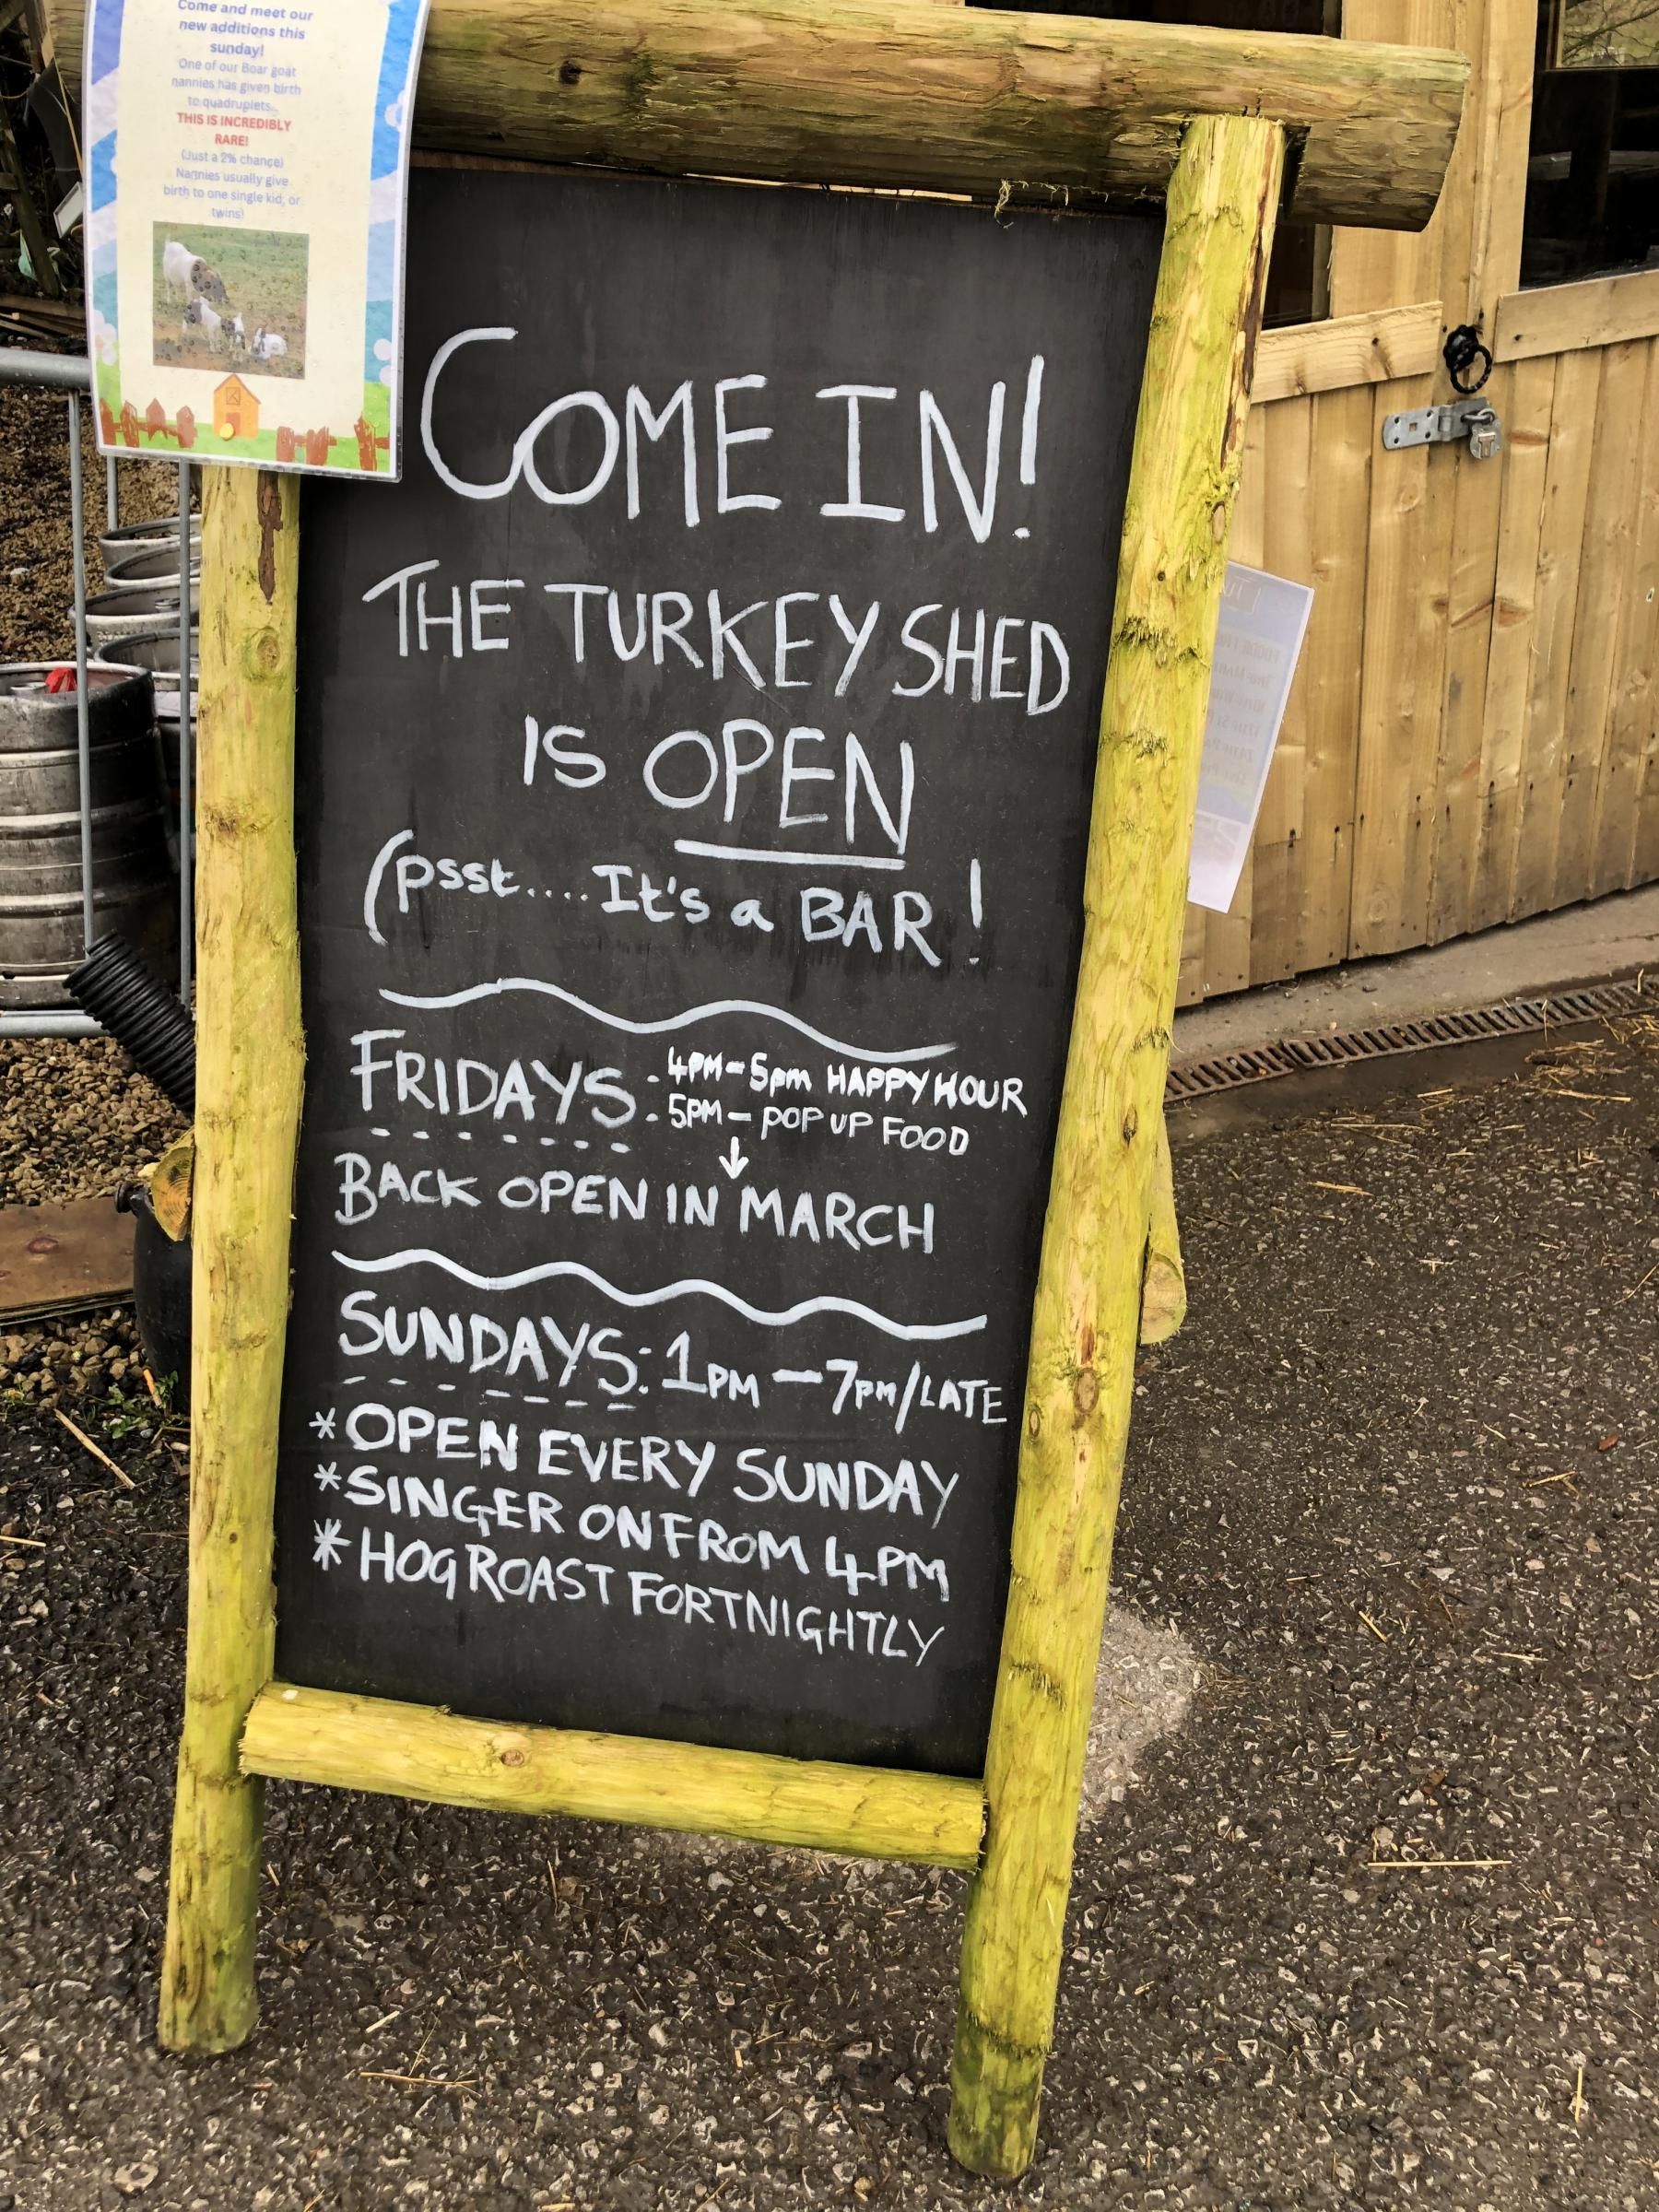 Come and meet our
new additions this
sunday!
One of our Boar goat
nannies has given birth
to quadruplets.
THIS IS INCREDIBLY
RARE!
(Just a 2% chance)
Nannies usually give
birth to one single kid, or
twins!
COME IN!
THE TURKEY SHED
IS OPEN
(psst.... It's a BAR!
FRIDAYS: 4PM-5pm HAPPY HOUR
: 5PM- POP UP FOOD
↓
BACK OPEN IN MARCH
SUNDAYS: 1PM-7pm/LATE
*OPEN EVERY SUNDAY
*SINGER ON FROM 4PM
*HOG ROAST FORTNIGHTLY